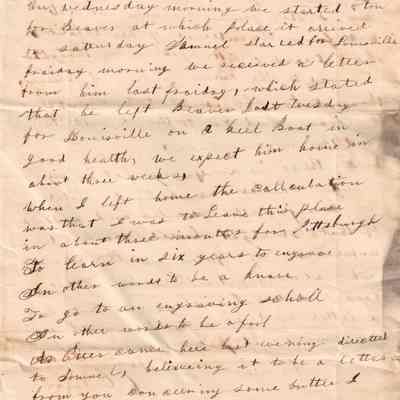 On wednesday morning we started
for Beaver at which place it arrived
saturday Samuel started for Louisville
fraiday morning we received a letter
from him last fraiday, which stated
that he left Beaver last Tuesday
for Louisville on a keel Boat in
good health, we expect him home in
about three weeks,
When I left home the callculation
was that I was to Leave this place
in about three months for Pittsburgh
To learn in six years to engrave
In other words to be a knave
To go to an engraving school
In other words to be a fool
As came here last evening directed
to Samuel, believeing it to be a letter
from you concerning some I